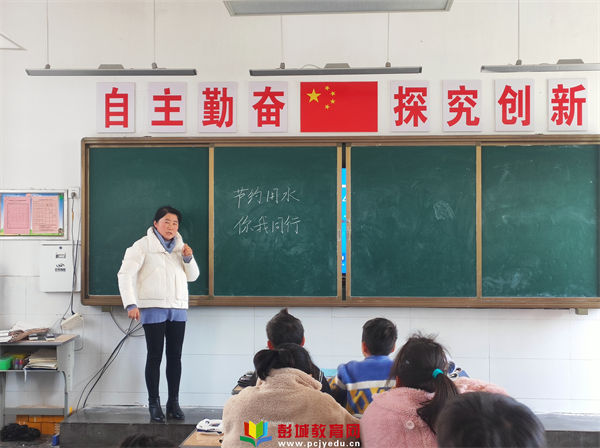 自主勤奋 探究创新
节约用水
你我同行
彭城教育网
www.pcjyedu.cn